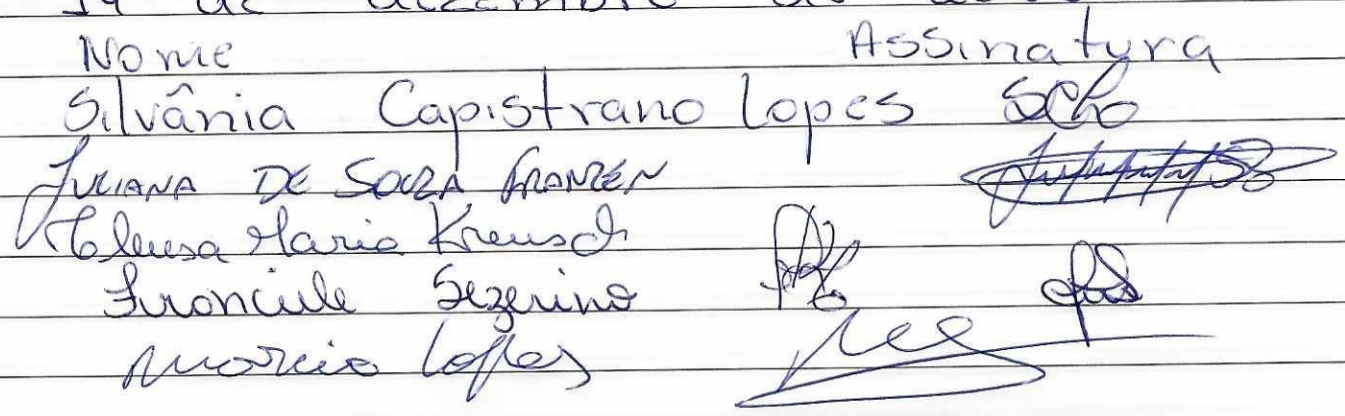 de dezembro
Nome Assinatura
Silvânia Capistrano Lopes SCLo
JULIANA DE SOUZA FRANZEN
Cleusa Maria Kreusch
Franciele Sezerino
Marcio Lopes